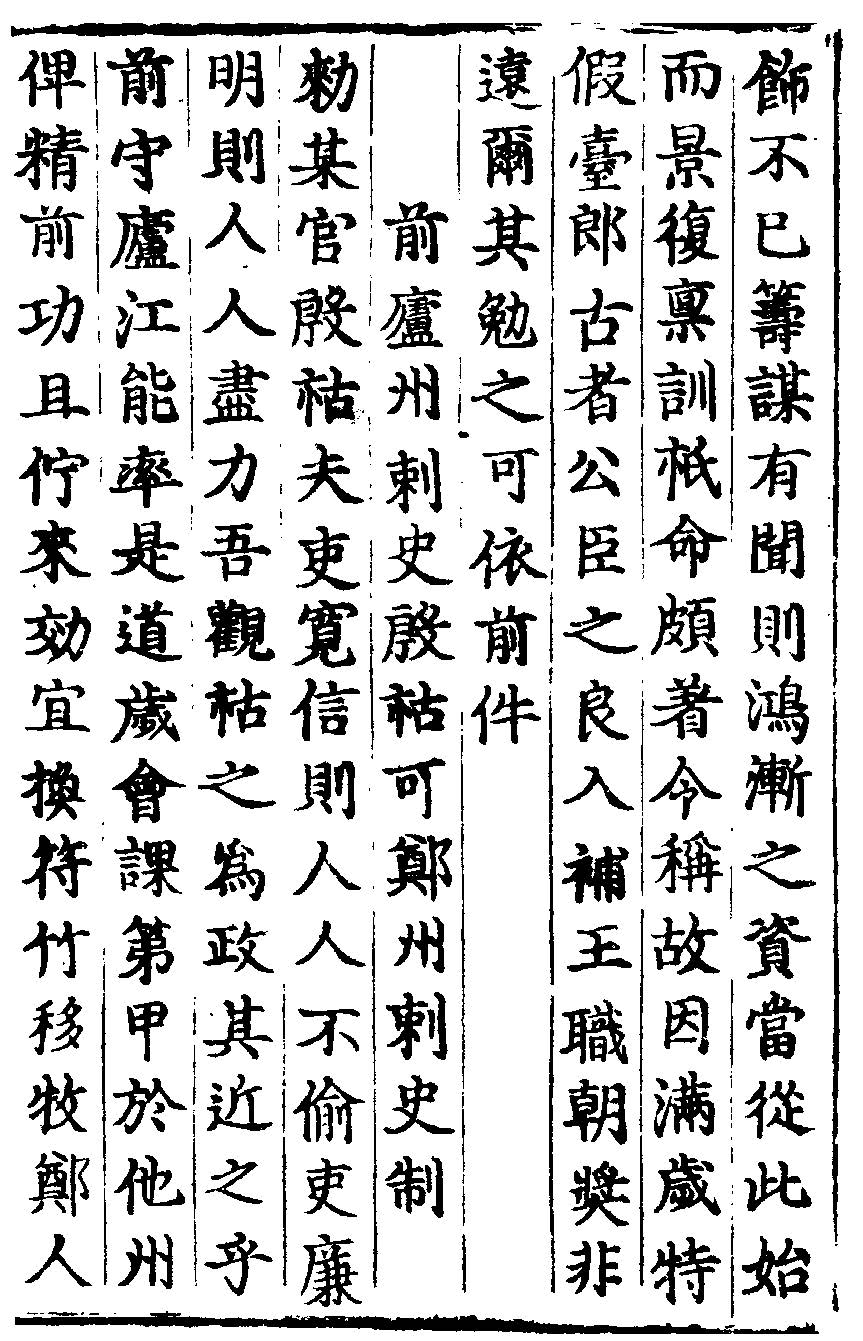 飾不已籌謀有聞則鴻漸之資當從此始
而景復禀訓祇命頗著令稱故因滿歲特
假臺郎古者公臣之良入補王職朝奬非
遠爾其勉之可依前件
前廬州刺史殷祐可鄭州刺史制
勑某官殷祜夫吏寬信則人人不偷吏廉
明則人人盡力吾觀祜之爲政其近之乎
前守廬江能率是道歲會課第甲於他州
俾精前功且佇來効宜換符竹移牧鄭人